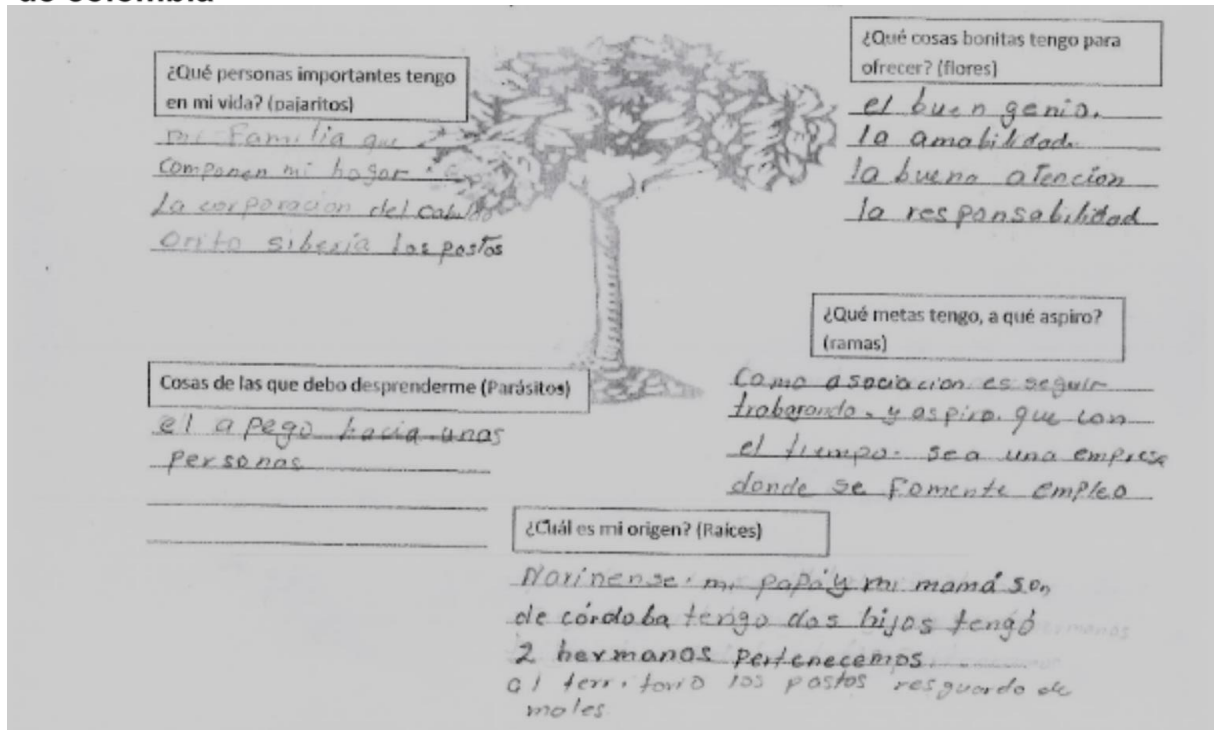 de colombia
¿Qué personas importantes tengo
en mi vida? (pajaritos)
mi Familia que
componen mi hogar
La corporacion del cabildo
orito siberia los pastos
¿Qué cosas bonitas tengo para
ofrecer? (flores)
el buen genio.
la amabilidad.
la buena atencion
la responsabilidad
¿Qué metas tengo, a qué aspiro?
(ramas)
Como asociacion es seguir
trabarando. y aspiro. que con
el tiempo. sea una empresa
donde se Fomente empleo
Cosas de las que debo desprenderme (Parásitos)
el apego hacia unas
personas
¿Cuál es mi origen? (Raíces)
Narinense. mi papá y mi mamá son
de córdoba tengo dos hijos tengó
2 hermanos pertenecemos.
al territorio los pastos resguardo de
males